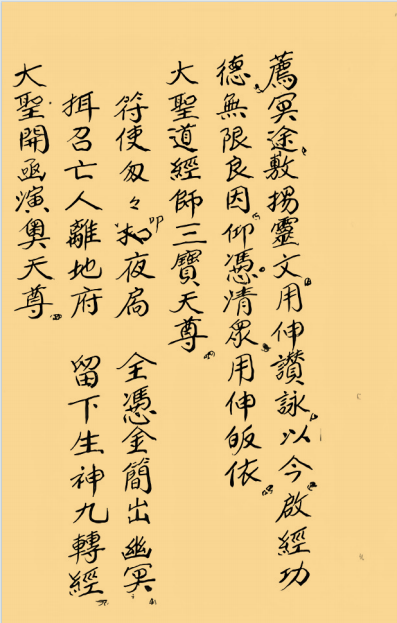 薦冥途敷揚靈文用伸讃詠以今啟經功
德無限良因仰憑清眾用伸皈依
大聖道經師三寶天尊
符使匆々扣夜扃　全憑金簡出幽冥
揖召亡人離地府　留下生神九轉經
大聖開函演奥天尊